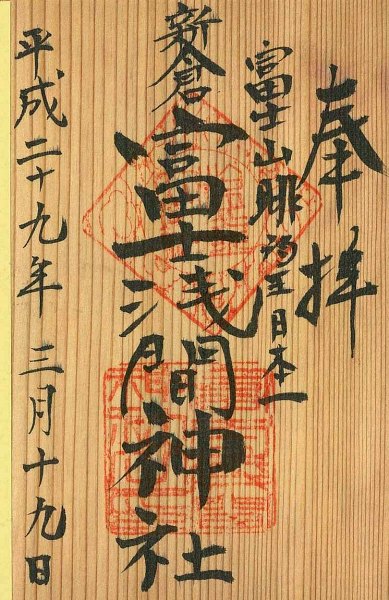 奉拝
富士山眺望日本一
新倉
富士浅間神社
平成二十九年 三月十九日